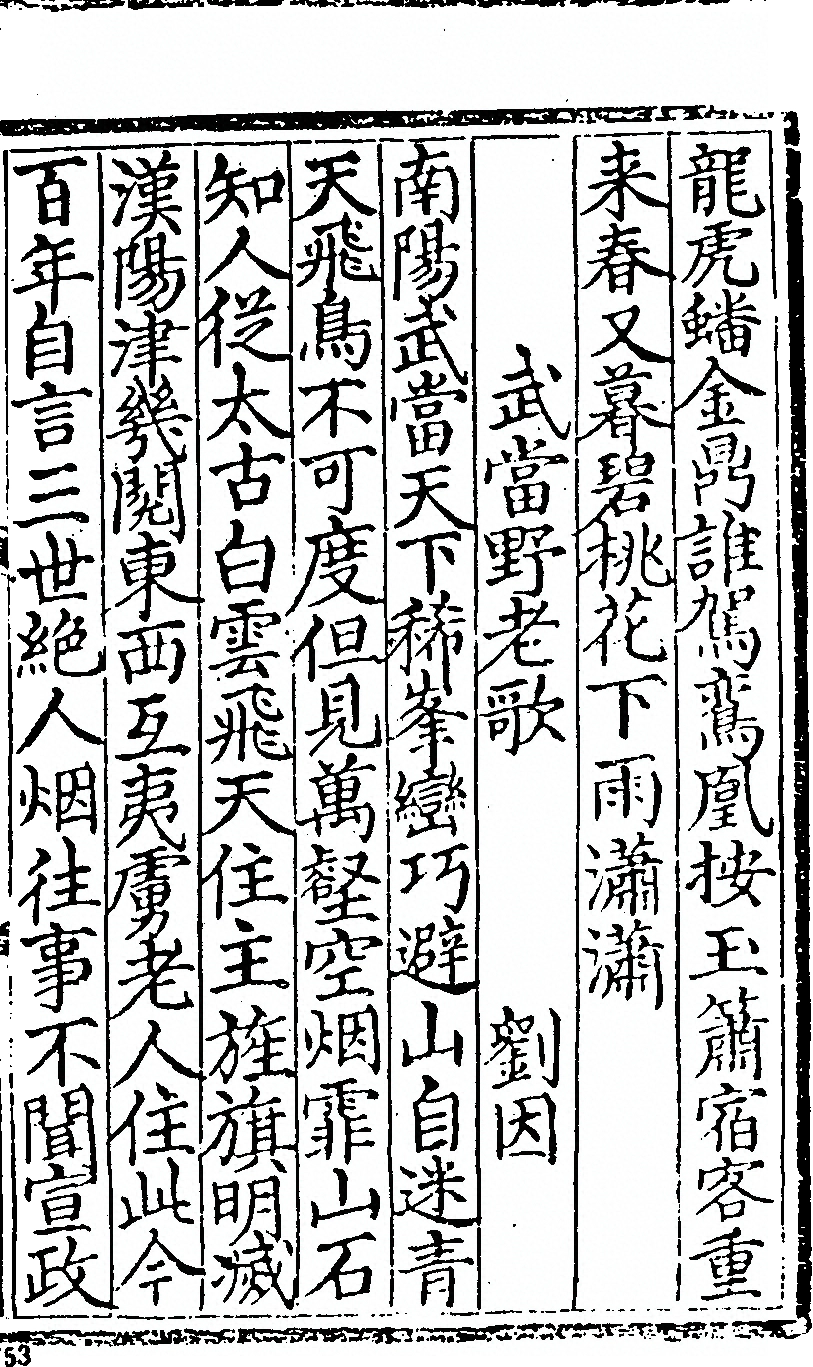 龍虎蟠金鼎誰駕鸞凰按玉簫宿客重
来春又暮碧桃花下雨瀟瀟
武當野老歌 劉因
南陽武當天下稀峯巒巧避山自迷青
天飛鳥不可度但見萬壑空烟霏山石
知人從太古白雲飛天住主旌旗明滅
漢陽津幾閱東西互夷虜老人住此今
百年自言三世絶人烟往事不聞宣政
53